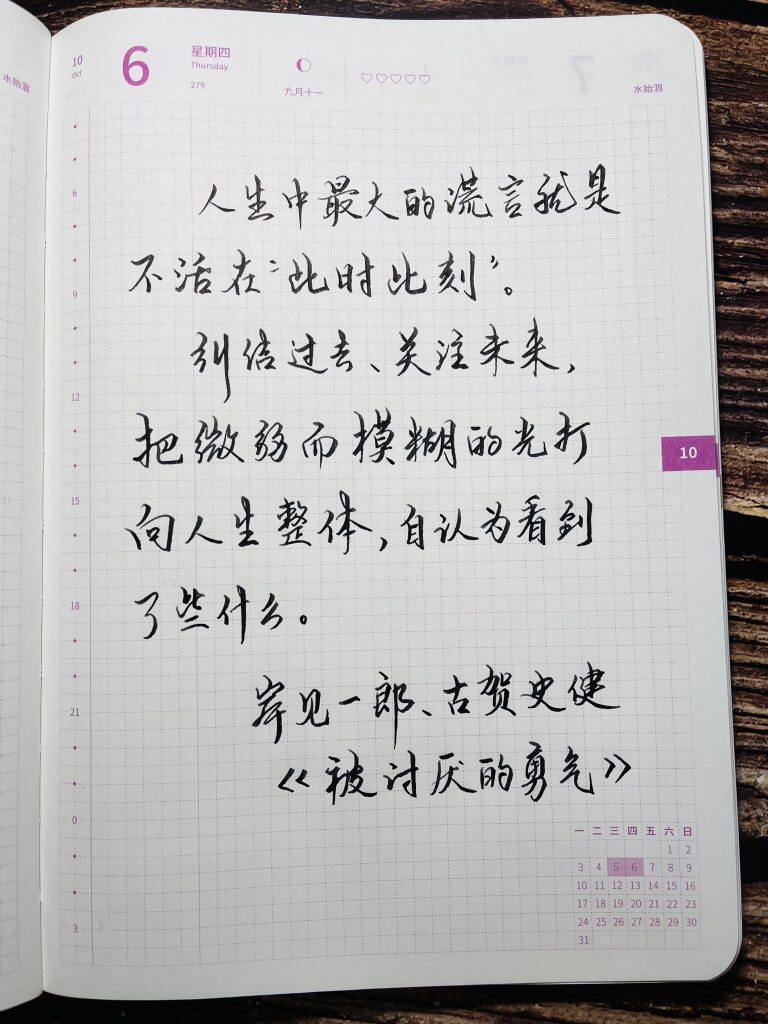 水始涸
10
Oct
6
星期四
Thursday
279
九月十一
♡♡♡♡♡
水始涸
人生中最大的谎言就是
不活在“此时此刻”。
纠结过去、关注未来，
把微弱而模糊的光打
向人生整体，自认为看到
了些什么。
岸见一郎、古贺史健
《被讨厌的勇气》
6
9
12
15
18
21
0
3
10
一 二 三 四 五 六 日
1 2
3 4 5 6 7 8 9
10 11 12 13 14 15 16
17 18 19 20 21 22 23
24 25 26 27 28 29 30
31